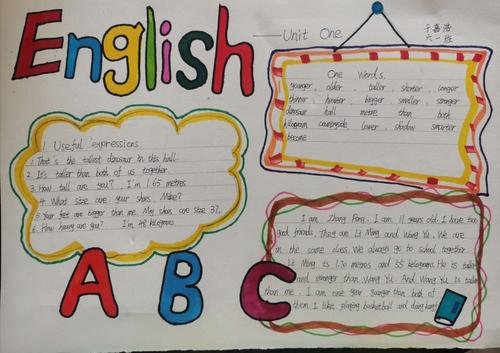 English
Unit One
于嘉浩
六一班
One Words.
younger, older, taller, shorter, longer
thinner heavier bigger smaller stronger
dinosaur hall metre than both
kilogram countryside lower, shadow smarter
become
Useful expressions
1. That's the tallest dinosaur in this hall.
2. It's taller than both of us together.
3. How tall are you? I'm 1.65 metres
4. What size are your shoes, Mike?
5. Your feet are bigger than me. My shoes are size 37.
6. How heavy are you? I'm 48 kilograms
I am Zhang Peng. I am 11 years old. I have two
good friends. That are Li Ming and Wang Yu. We are
in the same class. We always go to school together
Li Ming is 1.70 metres and 55 kilograms. He is taller
and stronger than Wang Yu. And Wang Yu is taller
than me. I am one year younger than both of
them. I like playing basketball and
A B C